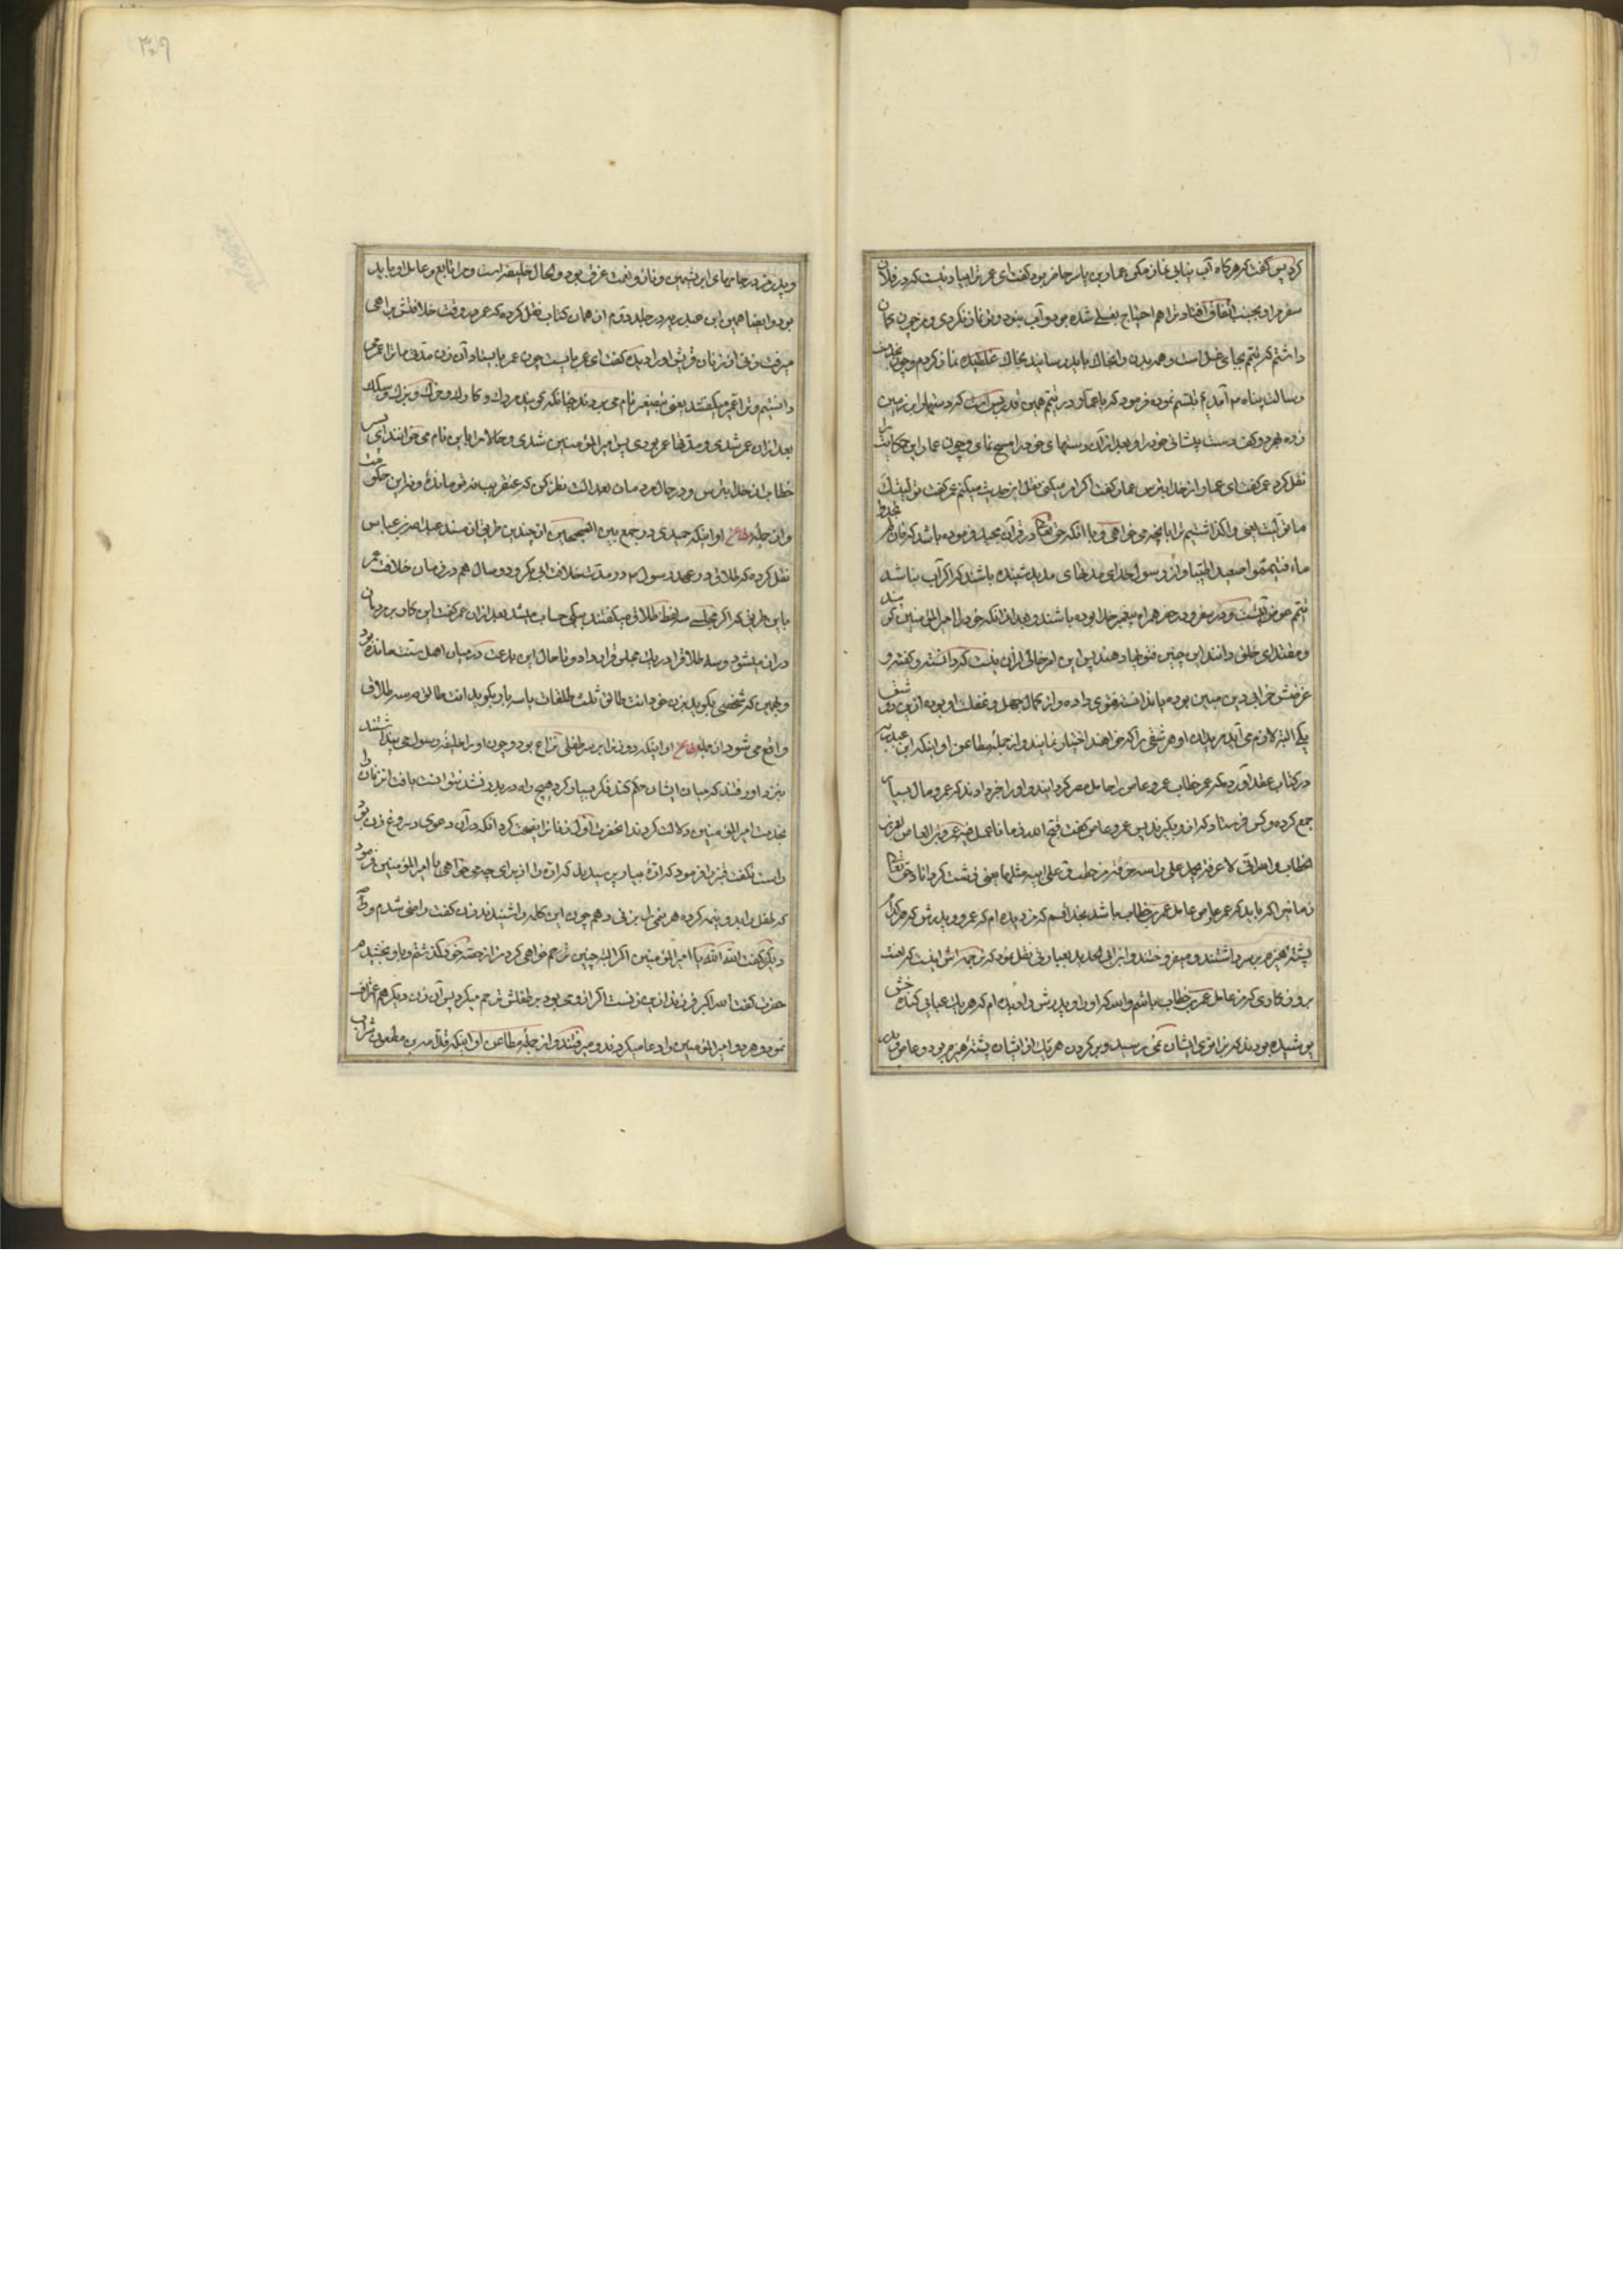 کرد پس گفت که هرگاه آب نیابی نماز مکن عمار بن یاسر حاضر بود گفت ای عمر ترا بیاد نیست که در فلان
سفر مرا و تو احتیاج بغسلی شده بود و آب نبود و تو نماز نکردی و من چون گمان
داشتم که تیمم بجای غسل است و همه بدن را بخاک باید رسانید بخاک غلطیده نماز کردم و چون بخدمت
رسالت پناه آمدیم تبسم نموده فرمود که یا عمار در تیمم همین قدر بس است که دستها را بر زمین
زده بهر دو کف دست پیشانی خود را و بعد از آن دستهای خود را مسح نمای و چون عمار این حکایت را
نقل کرد عمر گفت ای عمار از خدا بترس عمار گفت اگر امر میکنی نقل این حدیث میکنم عمر گفت نولیک
ما تولیت یعنی واگذاشتیم ترا بانچه می خواهی و با آنکه حق تعالی در قرآن مجید فرموده باشد که فان لم تجدوا
ماء فتیمموا صعیدا طیبا و از رسول خدای مدتهای مدید شنیده باشند که اگر آب نباشد
تیمم عوض آنست و در سفر و حضر همراه پیغمبر خدا بوده باشند و بعد از آنکه خود را امیر المؤمنین
و مقتدای خلق دانند این چنین فتویها دهند پس این امر خالی از آن نیست که دانسته و گفته و
غرضش خرابی دین مبین بوده یا ندانسته فتوی داده و از کمال جهل و غفلت او بوده از این دو شق
یکی البته لازم می آید مریدان او هر شقی را که خواهند اختیار نمایند و از جمله مطاعن او اینکه ابن عبد ربه
در کتاب عقد آورده که عمر خطاب عمرو عاص را عامل مصر گردانید و او را خبر دادند که عمرو مال بسیار
جمع کرده و کس فرستاد که از او بگیرند پس عمرو عاص گفت قبح الله زمانا عمل فیه عمرو بن العاص لعمر بن
الخطاب والله انی لاعرفه یحمل علی راسه حزمة من حطب و علی ابنه مثلها یعنی زشت گرداناد حق تعالی
زمانیرا که باید که عمرو عاص عامل عمر بن خطاب باشد بخدا قسم که من دیده ام که عمر و پدرش که هر کدام
پشته هیزم بر سر داشتند و میفروختند و ابن ابی الحدید بعبارتی نقل نموده که ترجمه اش اینست که لعنت
بر روزگاری که من عامل عمر بن خطاب باشم والله که او را و پدرش را دیده ام که هر یک عبائی کنده
پوشیده بودند که بزانوی ایشان نمی رسید و بر گردن هر یک از ایشان پشته هیزم بود و عاص
و پدر من در جامهای ابریشمین و ناز و نعمت غرق بود و الحال خلیفه است و مرا تابع و عامل او باید
بود و ایضا همین ابن در جلد دوم از همان کتاب نقل کرده که عمر در وقت خلافتش براهی
میرفت زنی از زنان قریش او را دید گفت ای عمر بایست چون عمر بایستاد آن زن گفت مدتی ما ترا
دانستیم و ترا عمیر میگفتند یعنی بتصغیر نام می بردند
بعد از آن عمر شدی و مدتها عمر بودی پس امیر المؤمنین شدی و حالا مرا باین نام می خوانند ای پسر
خطاب از خدا بترس و در حال مردمان بعدالت نظر کن که عنقریب نه تو مانده و نه این حکومت
و از جمله مطاعن او اینکه حمیدی در جمع بین الصحیحین از چندین طریق از مسند عبدالله بن عباس
نقل کرده که طلاق در عهد رسول و در مدت خلافت ابی بکر و دو سال هم در زمان خلافت عمر
باین طریق که اگر بمجلسی سه لفظ طلاق میگفتند بیکی حساب میشد بعد از آن عمر گفت این کار بر مردمان
دراز میشود و سه طلاق را در یک مجلس قرار داد و تا حال این بدعت در میان اهل سنت مانده بود
و بهمین که شخصی بگوید بزن خود انت طالق ثلث طلقات یا سه بار بگوید انت طالق هر سه طلاق
واقع می شود از جمله مطاعن او اینکه دو زن را بر سر طفلی نزاع بود و چون او را خلیفه رسول می پنداشتند
بنزد او رفتند که میان ایشان حکم کند فکر بسیار کرد هیچ راه در بدر نشد نتوانست یافت
بخدمت امیر المؤمنین دلالت کردند انحضرت اول زنانرا نصیحت کرد انکه در آن دعوی دروغ زن بود
راست نگفت قنبر را فرمود که اره بیار پرسیدند که اره را از برای چه می خواهی یا امیر المؤمنین فرمود
که طفل را بدو نیمه کرده هر نیمی را بزنی دهم چون این کلمه را شنیدند زنی گفت راضی شدم و آن
دیگر گفت الله الله یا امیر المؤمنین اگر البته چنین ترحم خواهی کرد من از حصه خود گذشتم و باو بخشیدم
حضرت گفت الله اکبر فرزند از این زنست اگر از او می بود بر طفلش ترحم میکرد پس آن زن دیگر هم اعتراف
نمود و هر دو امیر المؤمنین را دعا میکردند و میرفتند و از جمله مطاعن او اینکه قدامة بن مظعون شراب